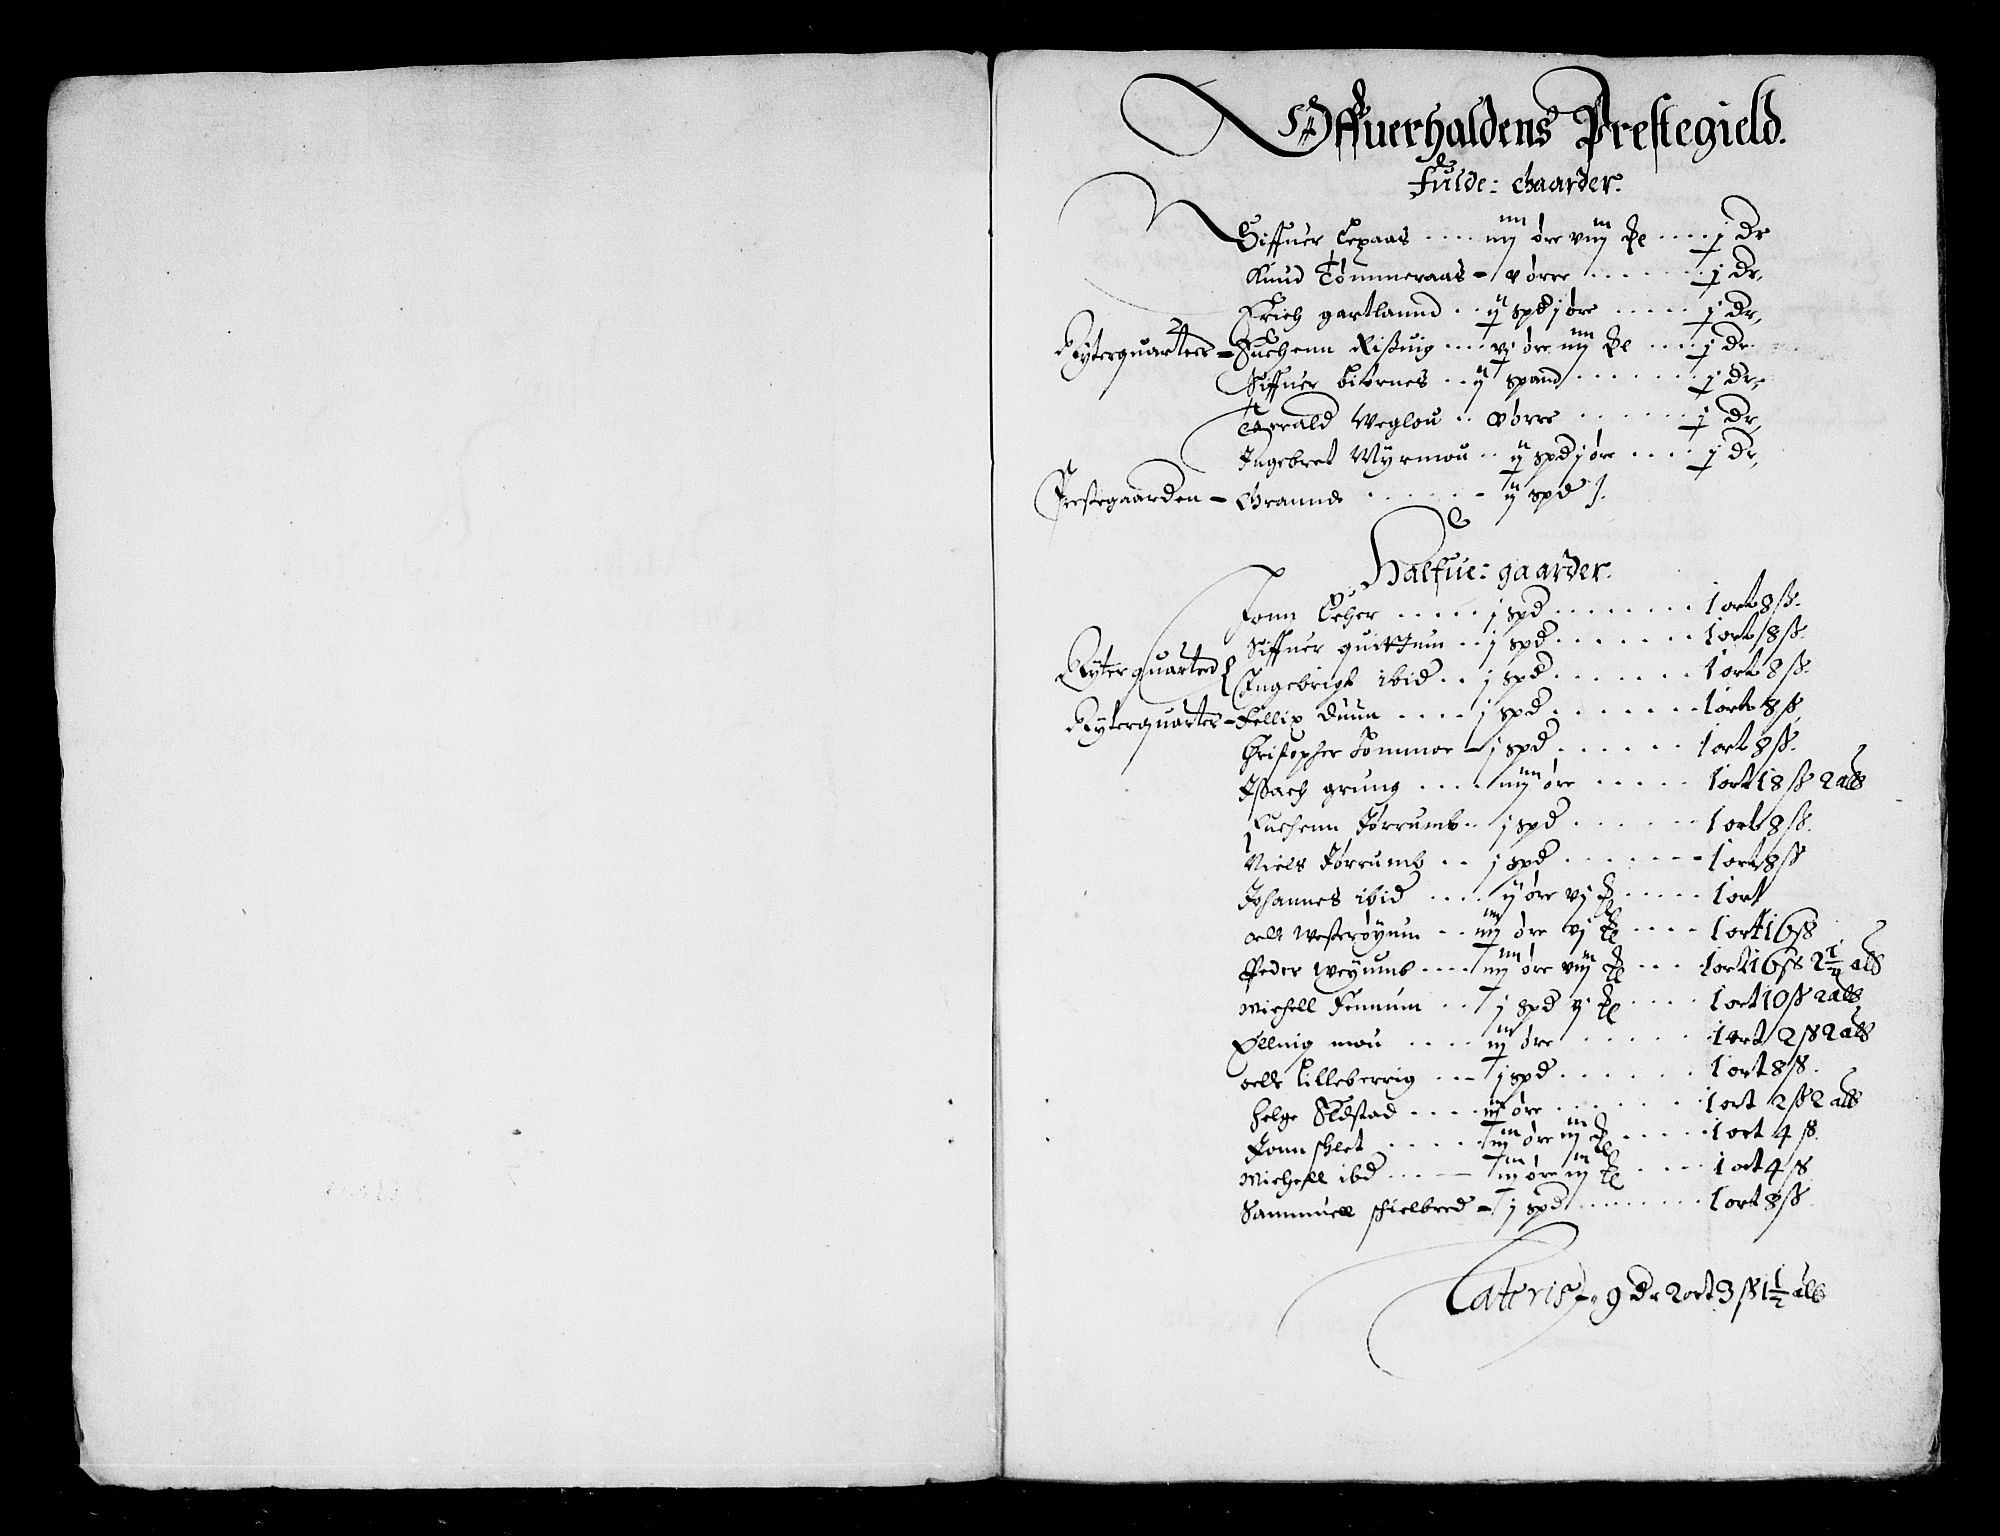 Offuerhaldens Prestegield.
Fulde: Gaarder.
Siffuer Lepaas .... iiij øre viij ... j Dr
Knud Tømmeraas - v øree ...... j Dr,
Erich gartlannd .. ij spd j øre ..... j Dr,
Ryterquarteer - Suchenn Rißuig .... vj øre iiij ... j Dr
Siffuer biørnes .. ij spand ...... j Dr,
Harald Weglou .. v ørre ...... j Dr,
Ingebret Myrmou .. ij spd j øre .... j Dr,
Prestegaarden - Grannde ...... ij spd
Halfue: gaarder.
Jonn Leher ..... j spd ........ 1 ort 8 ß.
Siffuer quittum .. j spd ....... 1 ort 8 ß.
Ryterquarteed Ingebrigt ibid .. j spd ....... 1 ort 8 ß.
Ryterquarter - Fellix Duun .... j spd ....... 1 ort 8 ß.
Christopher Tømmer - j spd ...... 1 ort 8 ß.
Issach grung .... iiij øre ..... 1 ort 18 ß 2 alb
Suchenn Førrumb .. j spd ...... 1 ort 8 ß.
Niels Førrumb .. j spd ....... 1 ort 8 ß
Johannes ibid .... ij øre vj ..... 1 ort
oelle Westerøyum .. iij øre vj .... 1 ort 16 ß
Peder Weyumb .... iiij øre viij ... 1 ort 16 ß 2 1/4 alb
Michell Femnum .. j spd vj .... 1 ort 10 ß 2 alb
Ellnig mou .... iij øre ...... 1 ort 2 ß 2 alb
oelle Lilleberrig ... j spd ...... 1 ort 8 ß.
Helge Eldstad .... iij øre ...... 1 ort 2 ß 2 alb
Jonn schlet ..... iij øre iij ..... 1 ort 4 ß.
Michell ibd .... iij øre iij .... 1 ort 4 ß
Sammuell schielbred - j spd ....... 1 ort 8 ß.
Lateris 9 Dr 2 ort 3 ß 1 1/2 alb